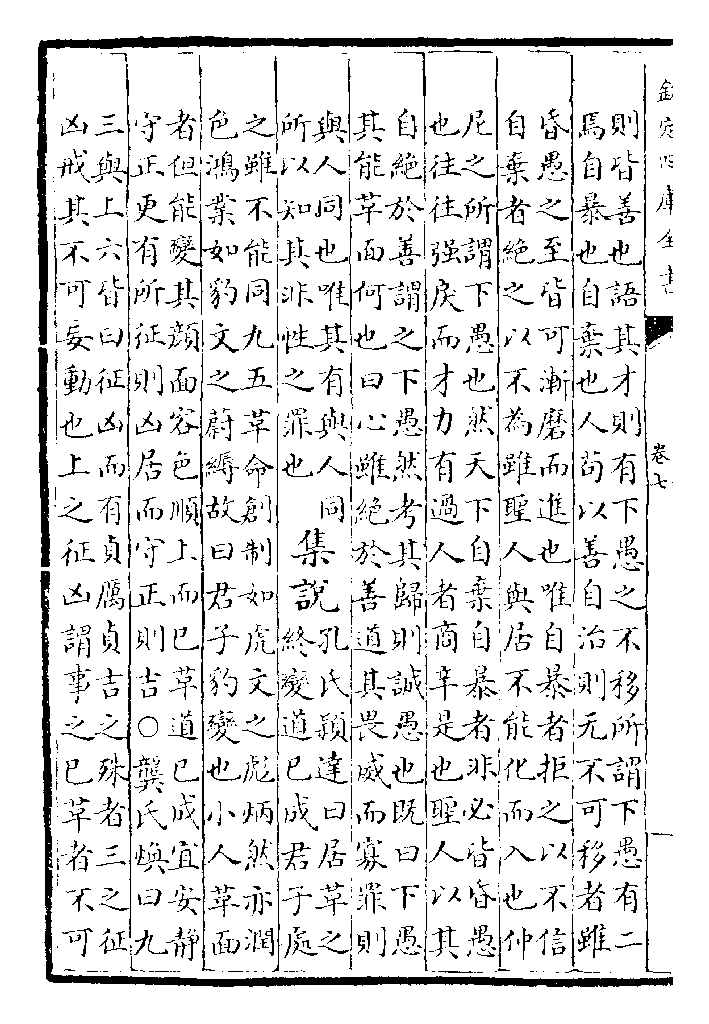 欽定四庫全書
卷七
則皆善也語其才則有下愚之不移所謂下愚有二
焉自暴也自棄也人苟以善自治則无不可移者雖
昏愚之至皆可漸磨而進也唯自暴者拒之以不信
自棄者絕之以不為雖聖人與居不能化而入也仲
尼之所謂下愚也然天下自棄自暴者非必皆昏愚
也往往强戾而才力有過人者商辛是也聖人以其
自絕於善謂之下愚然考其歸則誠愚也既曰下愚
其能革面何也曰心雖絕於善道其畏威而寡罪則
與人同也唯其有與人同
所以知其非性之罪也
集說
孔氏穎達曰居革之
終變道已成君子處
之雖不能同九五革命創制如虎文之彪炳然亦潤
色鴻業如豹文之蔚縟故曰君子豹變也小人革面
者但能變其顏面容色順上而已革道已成宜安靜
守正更有所征則凶居而守正則吉○龔氏煥曰九
三與上六皆曰征凶而有貞厲貞吉之殊者三之征
凶戒其不可妄動也上之征凶謂事之已革者不可